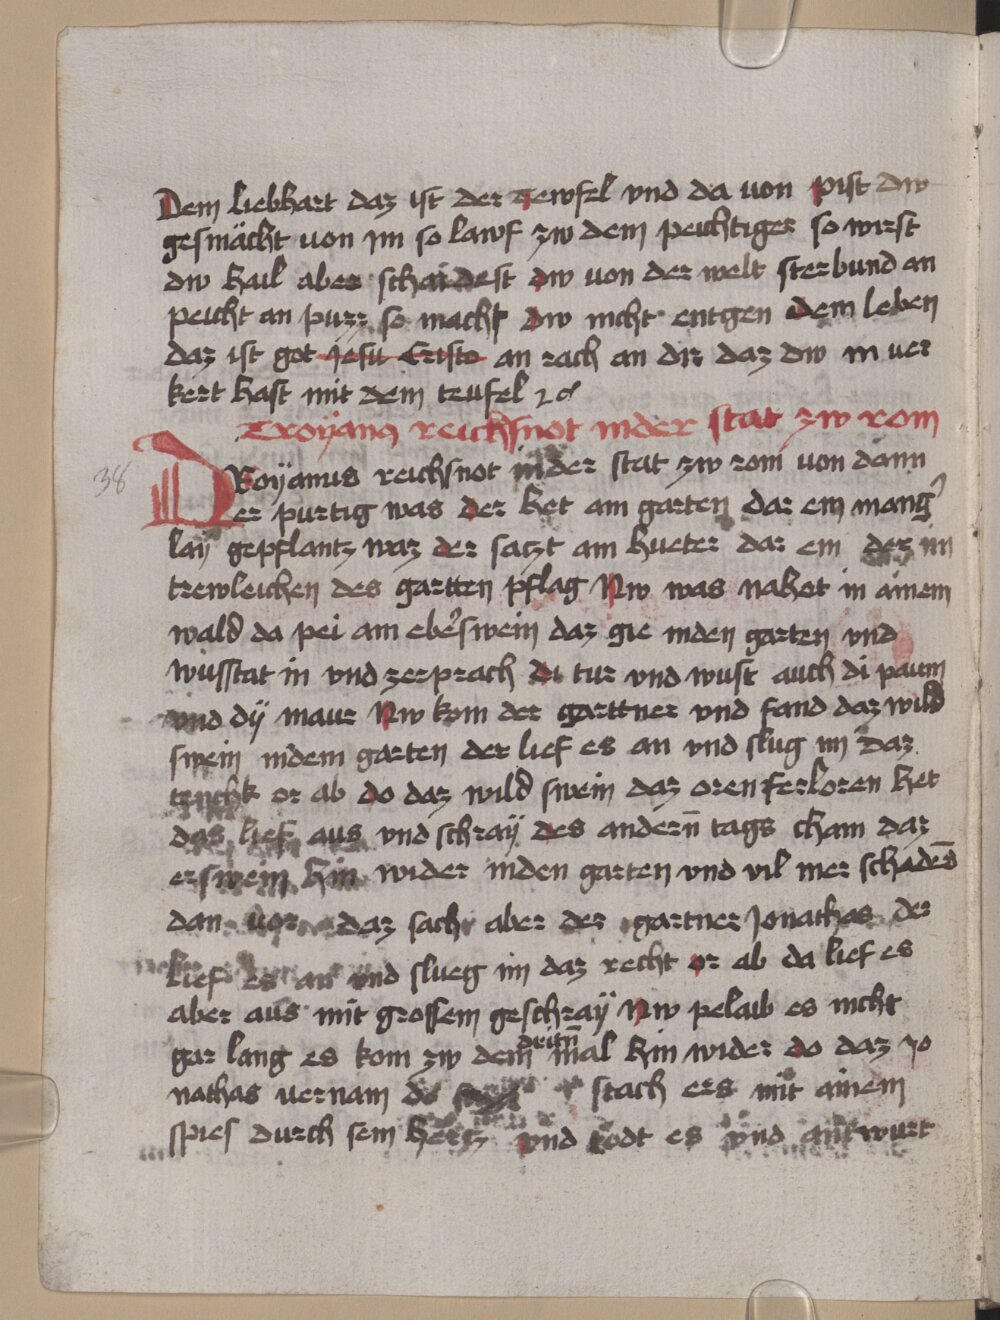 Dem liebhart daz ist der tewfel vnd da von pist dw
gesmächt von im so lawf zw dem peichtiger so wirst
dw hail aber schaidest dw von der welt sterbund an
peicht an puzz so macht dw nicht entgen dem leben
daz ist got Jesu Cristo an rach an dir daz dw in ver
kert hast mit dem teufel
Troÿanus reichsnot inder stat zw rom
38
TRoÿanus reichsnot inder stat zw rom von dann
er purtig was der het am garten dar ein mang
laÿ gepflantz waz der satzt am hueter dar ein der im
trewleichen des gartten pflag Nw was nahet in ainem
wald da pei am eberswein daz gie inden garten vnd
wusstat in vnd zerprach di tur vnd wust auch di paum
vnd dÿ maur Nw kom der garttner vnd fand daz wild
swein indem garten der lief es an vnd slug im daz
tenchk or ab do daz wild swein daz oren ferloren het
das lief aus vnd schraÿ des andern tags cham daz
erswein hin wider inden garten vnd vil mer schadens
dan vor daz sach aber der gartner Jonathas der
lief es an vnd slueg im daz recht or ab da lief es
aber aus mit grossem geschraÿ Nw pelaib es nicht
gar lang es kom zw dem dritn mal hin wider do daz Jo
nathas vernam do stach ers mit ainem
spies durch sein hertz vnd todt es vnd antwurt